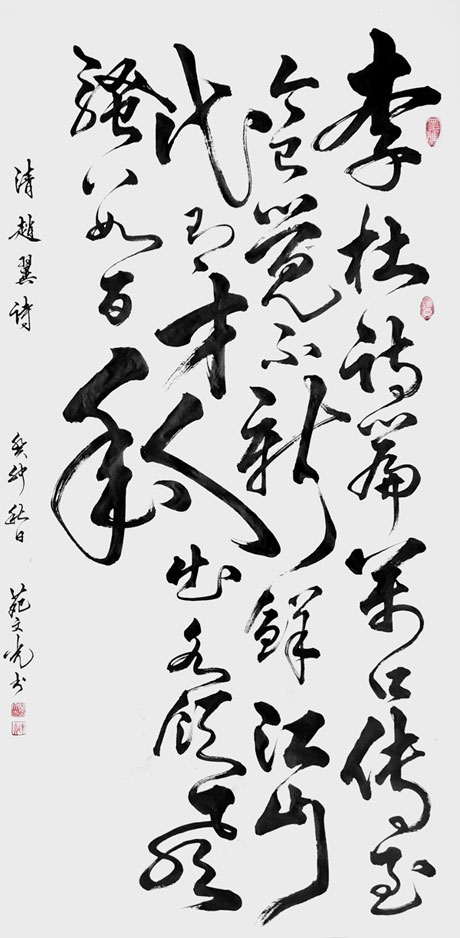 李杜詩篇萬口傳至
今已覺不新鮮江山
代有才人出各領風
騷數百年
清趙翼詩
癸卯秋日 文光书